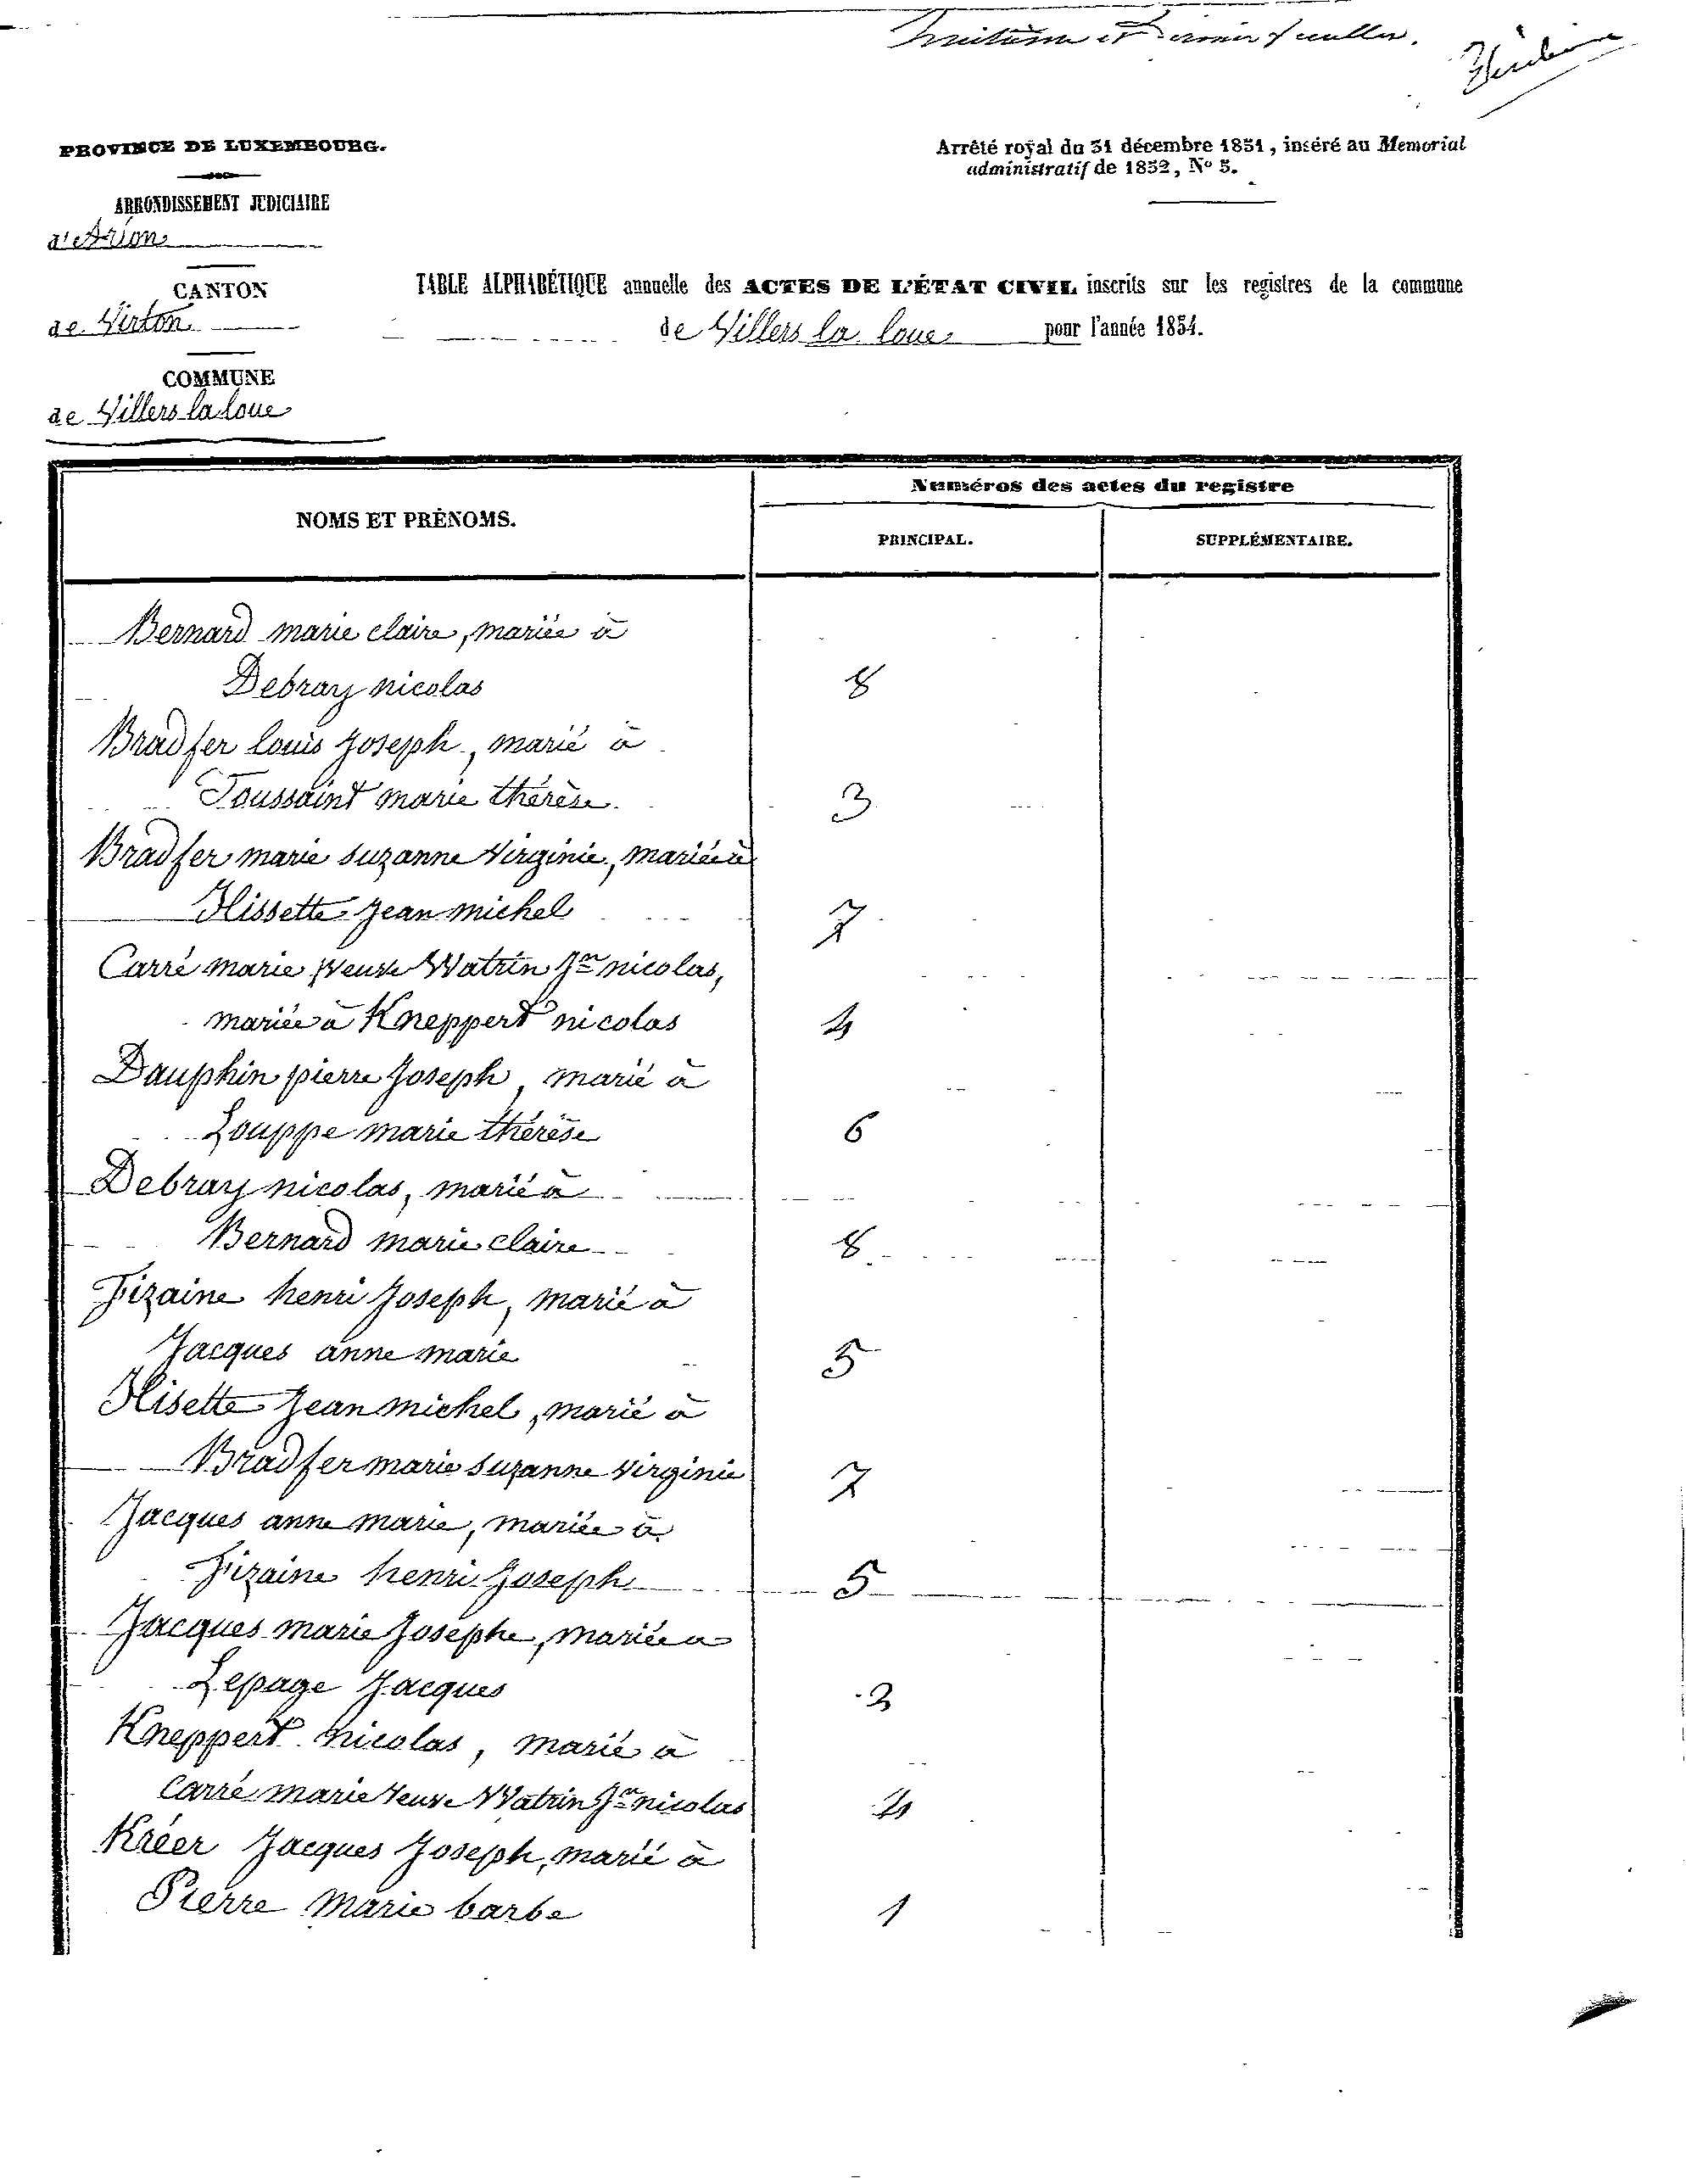 huitième et dernier feuillet.
PROVINCE DE LUXEMBOURG.
Arrêté royal du 31 décembre 1831, inséré au Memorial
administratif de 1832, No 5.
ARRONDISSEMENT JUDICIAIRE
d'Arlon
CANTON
de Virton
COMMUNE
de Villers la loue
TABLE ALPHABÉTIQUE annuelle des ACTES DE L'ÉTAT CIVIL inscrits sur les registres de la commune
de Villers la loue pour l'année 1854.
NOMS ET PRÉNOMS.
Numéros des actes du registre
PRINCIPAL.
SUPPLÉMENTAIRE.
Bernard marie claire, mariée à
Debray nicolas 8
Bradfer louis Joseph, marié à
Toussaint marie thérèse 3
Bradfer marie suzanne Virginie, mariée à
Hissette Jean michel 7
Carré marie Veuve Watrin Jn nicolas,
mariée à Kneppert nicolas 4
Dauphin pierre Joseph, marié à
Louppe marie thérèse 6
Debray nicolas, marié à
Bernard marie claire 8
Fizaine henri Joseph, marié à
Jacques anne marie 5
Hisette Jean michel, marié à
Bradfer marie suzanne virginie 7
Jacques anne marie, mariée à
Fizaine henri Joseph 5
Jacques marie Josephe, mariée a
Lepage Jacques 2
Kneppert nicolas, marié à
Carré marie Veuve Watrin Jn nicolas 4
Kréer Jacques Joseph, marié à
Pierre Marie barbe 1